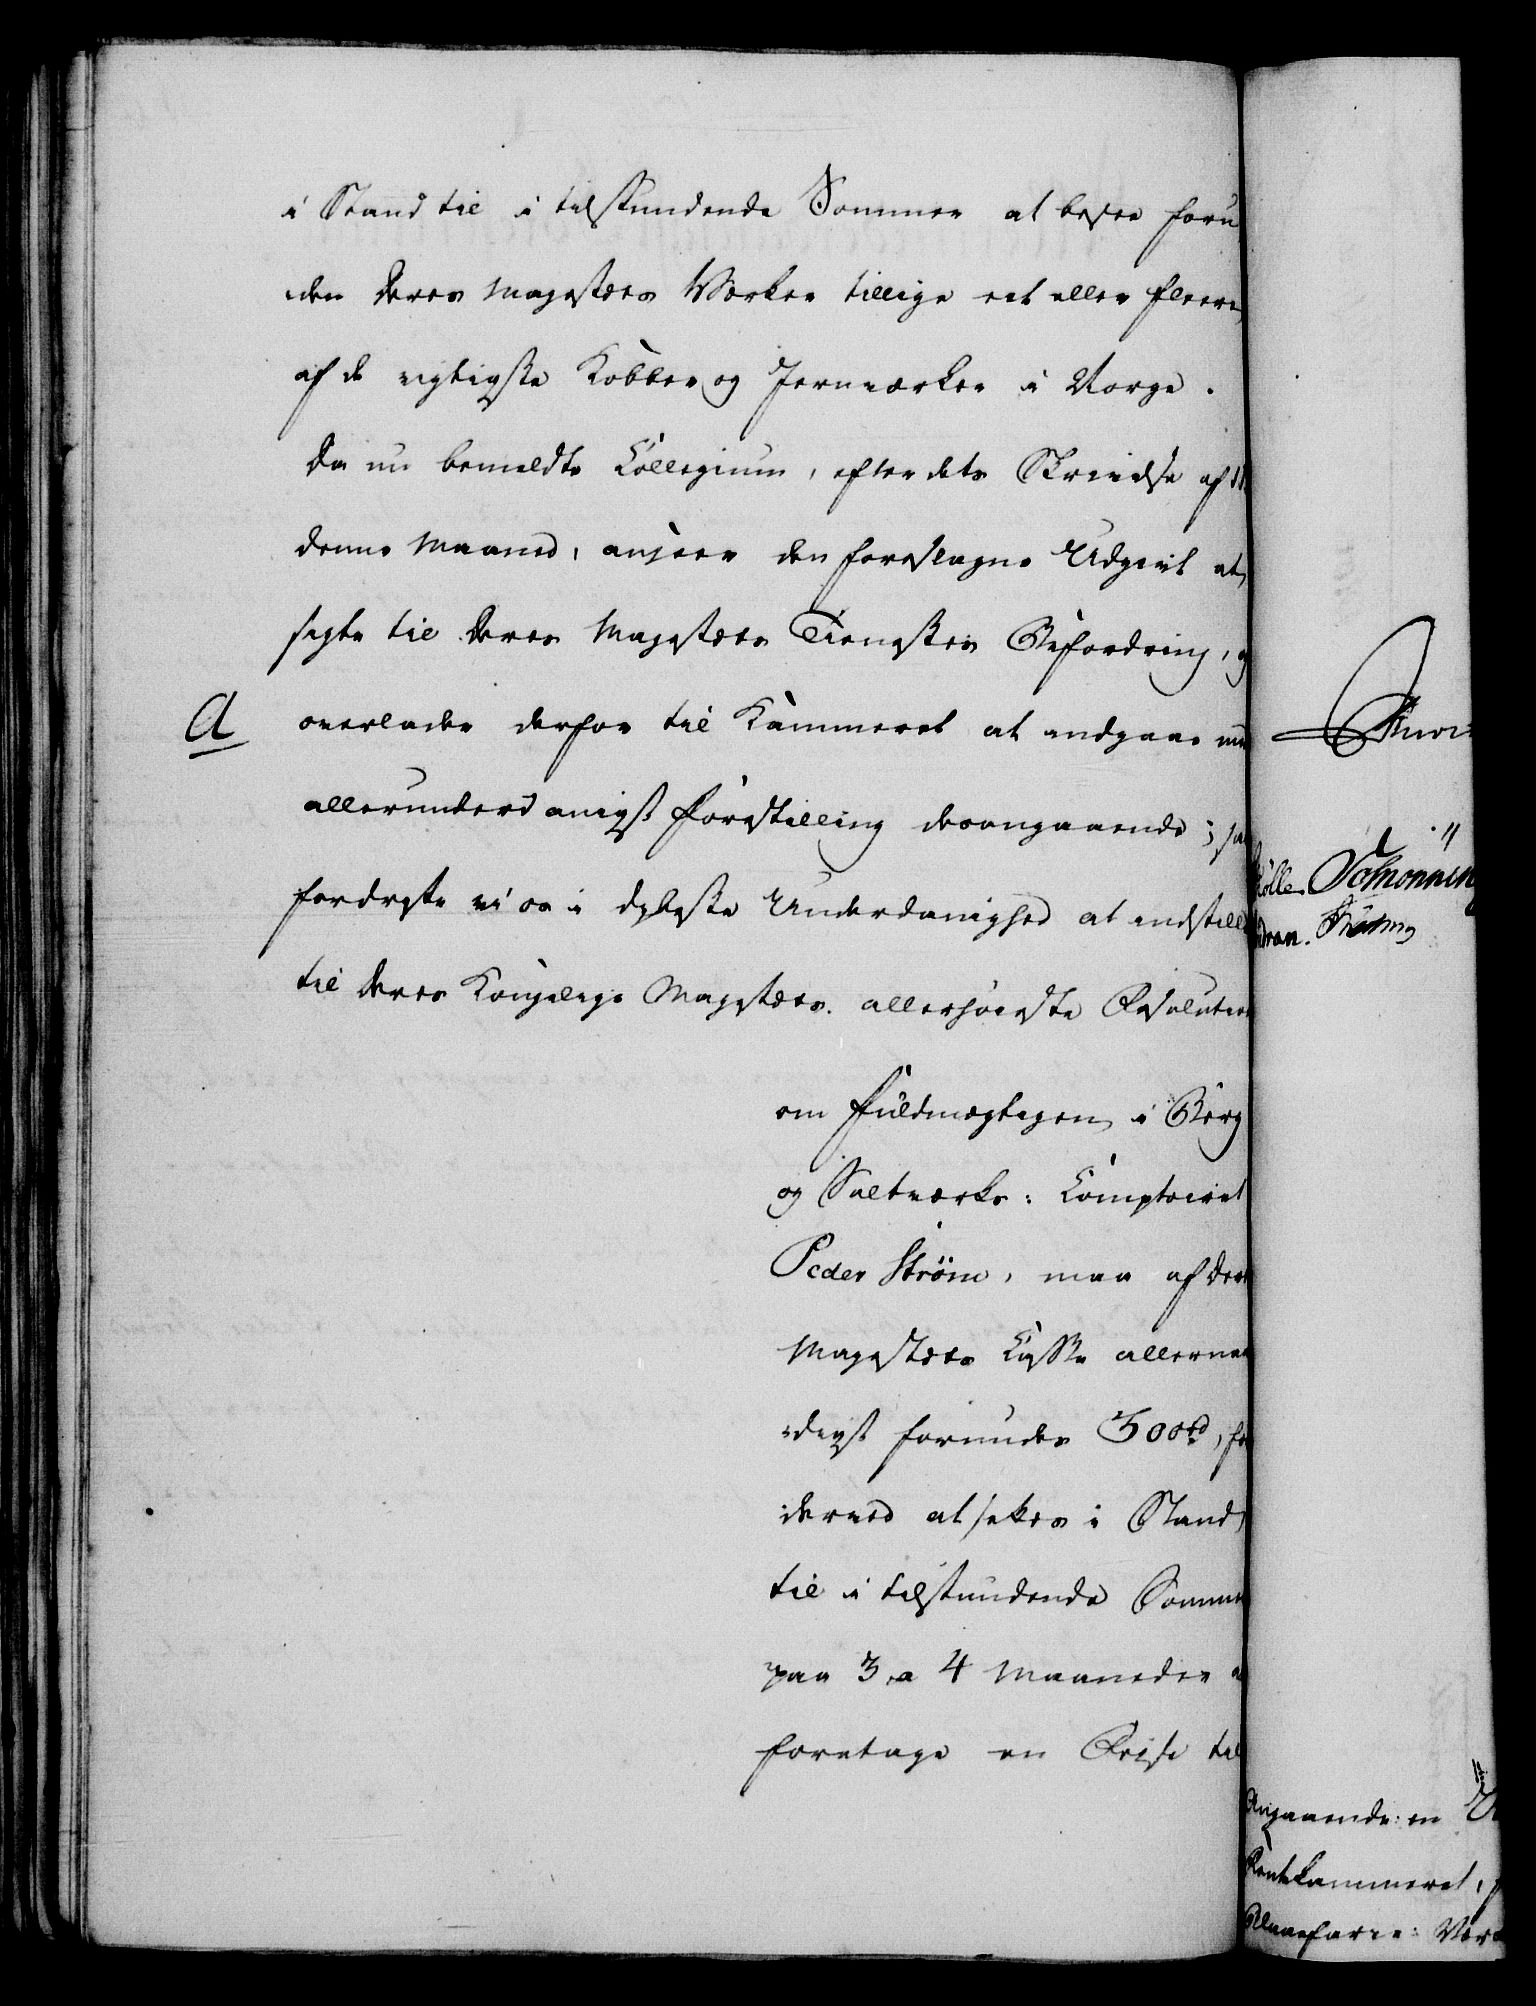 i Stand til i tilstundende Sommer at besee foru
den Deres Majestæts Værker tillige eet eller fleere
af de vigtigste Kobber og Jernværker i Norge.
Da nu bemeldte Collegium, efter dets Skrivelse af 11
denne Maaned, anseer den foreslagne Udgivt at
sigte til Deres Majestæts Tienestes Befordring, og
A
overlader derfor til Kammeret at indgaae med
allerunderdanigst Forestilling desangaaende; saa
fordriste vi os i dybeste Underdanighed at indstille
til Deres Kongelige Majestæts allerhøieste Resolution
om Fuldmægtigen i Berg
og Saltværks: Comptoiret
Peder Strøm, maa af Deres
Majestæts Casse allernaa
digst forundes 300 rd, for
derved at sættes i Stand
til i tilstundende Sommer
paa 3 a 4 Maaneder at
foretage en Reise til
Schønning
Angaaende: en
Rentekammeret,
Blaafarve: Vær